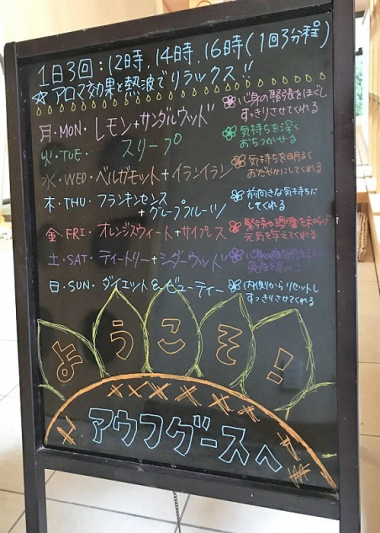 1日3回:12時, 14時, 16時(1回3分程)
☆アロマ効果と熱波でリラックス!!
月・MON・レモン+サンダルウッド 心身の緊張をほぐし
すっきりさせてくれる
火・TUE・スリープ 気持ちを深く
おちつかせる
水・WED・ベルガモット+イランイラン 気持ちを明るく
おだやかにしてくれる
木・THU・フランキンセンス
+グレープフルーツ 前向きな気持ちに
してくれる
金・FRI・オレンジスウィート+サイプレス 緊張や を和らげ
元気を与えてくれる
土・SAT・ティートリー+シダーウッド
日・SUN・ダイエット&ビューティー 内側からリセットし
すっきりさせてくれる
ようこそ!
アウフグースへ